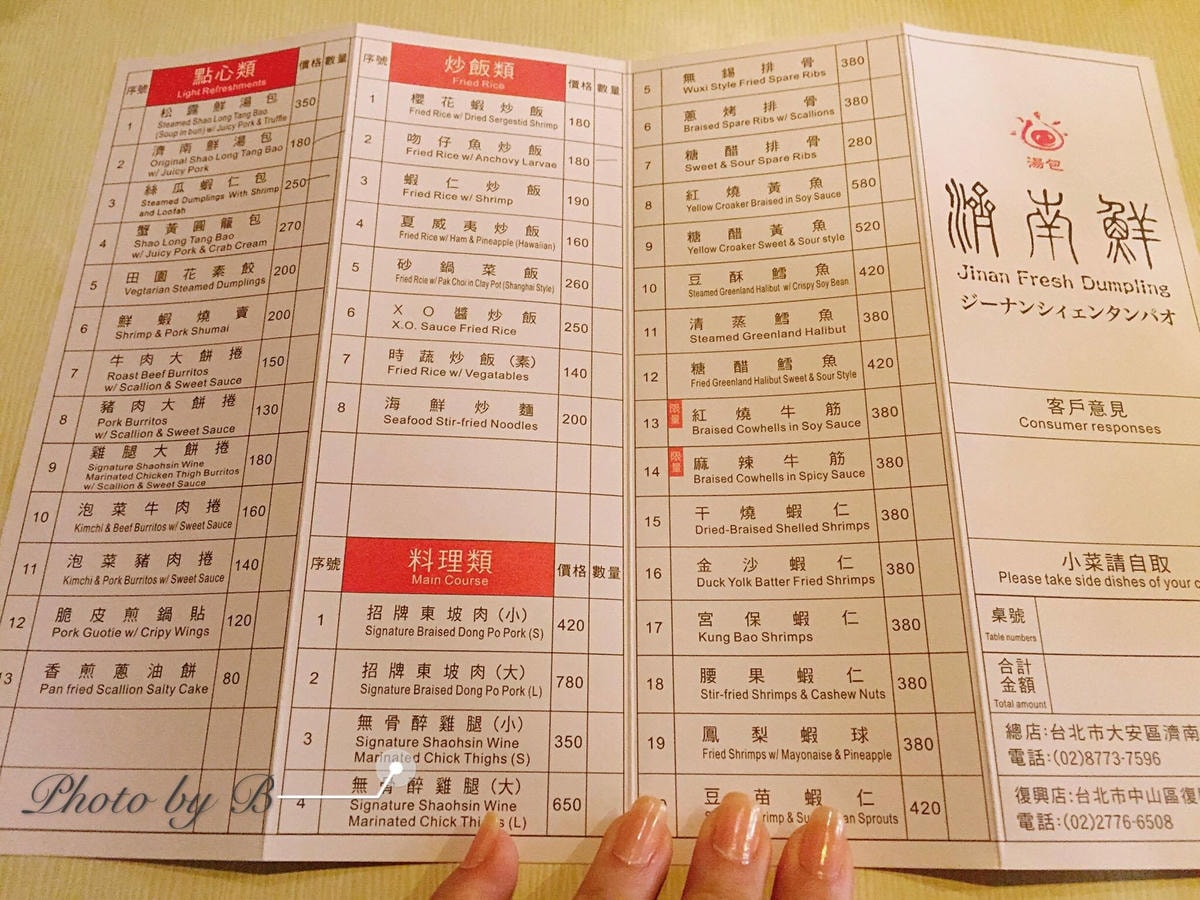 序號 點心類 價格 數量
Light Refreshments
1 松露鮮湯包 350
Steamed Shao Long Tang Bao
(Soup in bun) w/ Juicy Pork & Truffle
2 濟南鮮湯包 180
Original Shao Long Tang Bao
w/ Juicy Pork
3 絲瓜蝦仁包 250
Steamed Dumplings With Shrimp
and Loofah
4 蟹黃圓籠包 270
Shao Long Tang Bao
w/ Juicy Pork & Crab Cream
5 田園花素餃 200
Vegtarian Steamed Dumplings
6 鮮蝦燒賣 200
Shrimp & Pork Shumai
7 牛肉大餅捲 150
Roast Beef Burritos
w/ Scallion & Sweet Sauce
8 豬肉大餅捲 130
Pork Burritos
w/ Scallion & Sweet Sauce
9 雞腿大餅捲 180
Signature Shaohsin Wine
Marinated Chicken Thigh Burritos
w/ Scallion & Sweet Sauce
10 泡菜牛肉捲 160
Kimchi & Beef Burritos w/ Sweet Sauce
11 泡菜豬肉捲 140
Kimchi & Pork Burritos w/ Sweet Sauce
12 脆皮煎鍋貼 120
Pork Guotie w/ Cripy Wings
13 香煎蔥油餅 80
Pan fried Scallion Salty Cake
序號 炒飯類 價格 數量
Fried Rice
1 櫻花蝦炒飯 180
Fried Rice w/ Dried Sergestid Shrimp
2 吻仔魚炒飯 180
Fried Rice w/ Anchovy Larvae
3 蝦仁炒飯 190
Fried Rice w/ Shrimp
4 夏威夷炒飯 160
Fried Rice w/ Ham & Pineapple (Hawaiian)
5 砂鍋菜飯 260
Fried Rcie w/ Pak Choi in Clay Pot (Shanghai Style)
6 XO醬炒飯 250
X.O. Sauce Fried Rice
7 時蔬炒飯(素) 140
Fried Rice w/ Vegatables
8 海鮮炒麵 200
Seafood Stir-fried Noodles
序號 料理類 價格 數量
Main Course
1 招牌東坡肉(小) 420
Signature Braised Dong Po Pork (S)
2 招牌東坡肉(大) 780
Signature Braised Dong Po Pork (L)
3 無骨醉雞腿(小) 350
Signature Shaohsin Wine
Marinated Chick Thighs (S)
4 無骨醉雞腿(大) 650
Signature Shaohsin Wine
Marinated Chick Thighs (L)
5 無錫排骨 380
Wuxi Style Fried Spare Ribs
6 蔥烤排骨 380
Braised Spare Ribs w/ Scallions
7 糖醋排骨 280
Sweet & Sour Spare Ribs
8 紅燒黃魚 580
Yellow Croaker Braised in Soy Sauce
9 糖醋黃魚 520
Yellow Croaker Sweet & Sour style
10 豆酥鱈魚 420
Steamed Greenland Halibut w/ Crispy Soy Bean
11 清蒸鱈魚 380
Steamed Greenland Halibut
12 糖醋鱈魚 420
Fried Greenland Halibut Sweet & Sour Style
13 限量 紅燒牛筋 380
Braised Cowhells in Soy Sauce
14 限量 麻辣牛筋 380
Braised Cowhells in Spicy Sauce
15 干燒蝦仁 380
Dried-Braised Shelled Shrimps
16 金沙蝦仁 380
Duck Yolk Batter Fried Shrimps
17 宮保蝦仁 380
Kung Bao Shrimps
18 腰果蝦仁 380
Stir-fried Shrimps & Cashew Nuts
19 鳳梨蝦球 380
Fried Shrimps w/ Mayonaise & Pineapple
豆苗蝦仁 420
Sprouts
湯包
濟南鮮
Jinan Fresh Dumpling
ジーナンシィェンタンパオ
客戶意見
Consumer responses
小菜請自取
Please take side dishes of your
桌號
Table numbers
合計
金額
Total amount
總店:台北市大安區濟南
電話:(02)8773-7596
復興店:台北市中山區復
電話:(02)2776-6508
Photo by B